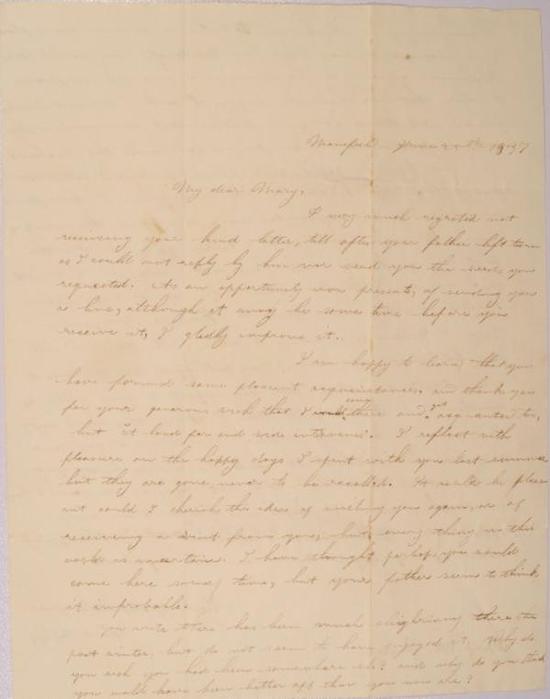 My dear Mary,
I very much regreted not
receiving your kind letter, till after your father left town
as I could not reply by him nor send you the seed, you
requested. As an opportunity now presents, of sending you
a line, although it may be some time before you
receive it, I gladly improve it.
I am happy to learn that you
have formed some pleasant acquaintances, and thank you
for your generous wish that I was there and get acquainted too,
but "a land far and wide intervenes". I reflect with
pleasure on the happy days I spent with you last summer
but they are gone, never to be recalled. It would be pleas
ant could I cherish the idea of visiting you again, or of
receiving a visit from you, but every thing in this
world is uncertain. I have thought perhaps you would
come here some time, but your father seems to think
it improbable.
You write there has been much sleighriding there the
past winter, but do not seem to have enjoyed it. Why do
you wish you had been somewhere else? and why do you think
you would have been better off than you now are?